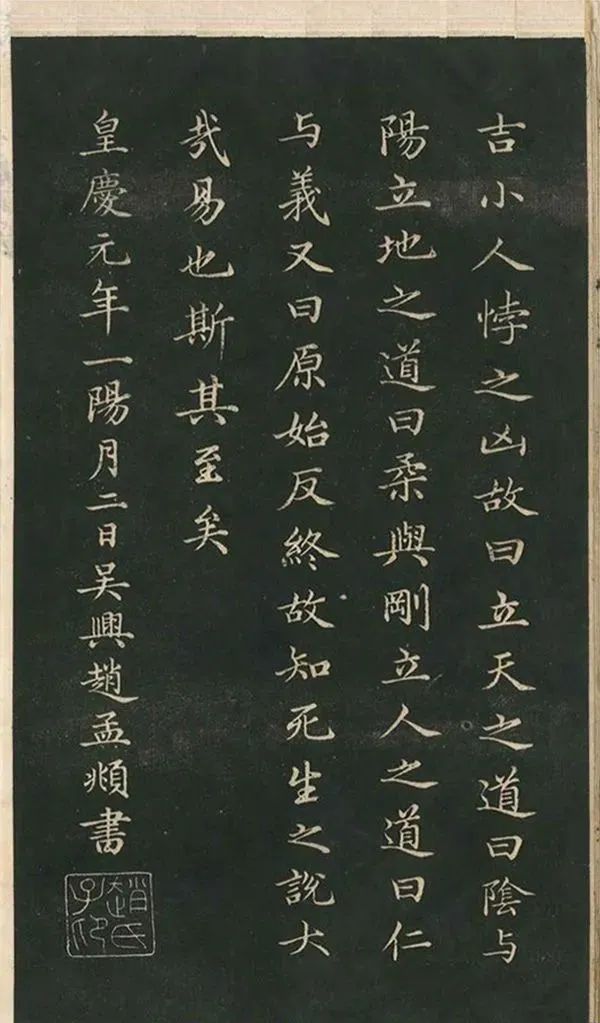 吉小人悖之凶故曰立天之道曰陰与
陽立地之道曰柔與剛立人之道曰仁
与義又曰原始反終故知死生之說大
哉易也斯其至矣
皇慶元年一陽月二日吴興趙孟頫書
趙氏子昂